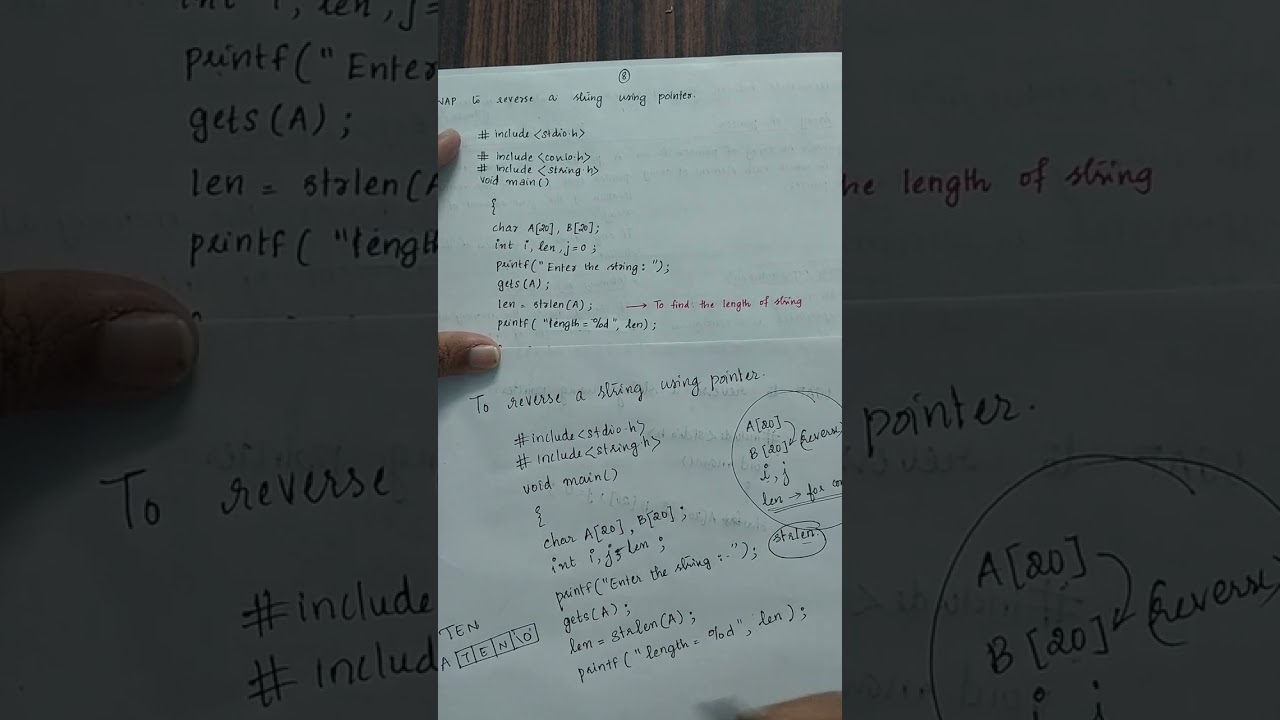 ⑧
WAP to reverse a string using pointer.
# include <stdio.h>
# include <conio.h>
# include <string.h>
void main()
{
char A[20], B[20];
int i, len, j=0;
printf("Enter the string: ");
gets(A);
len = strlen(A); → To find the length of string
printf( "length = %d", len);
To reverse a string using pointer.
#include<stdio.h>
# include<string.h>
void main()
{
char A[20], B[20];
int i, j, len;
printf("Enter the string :-");
gets(A);
len = strlen(A);
printf(" length = %d", len);
A[20]
B[20] (reverse)
i, j
len → for
strlen
TEN
A T E N \0
int i, len, j=
printf("Enter
gets(A);
len = strlen(A
printf( "length
the length of string
To reverse
#include
# include
pointer.
A[20]
B[20] (reverse)
i j